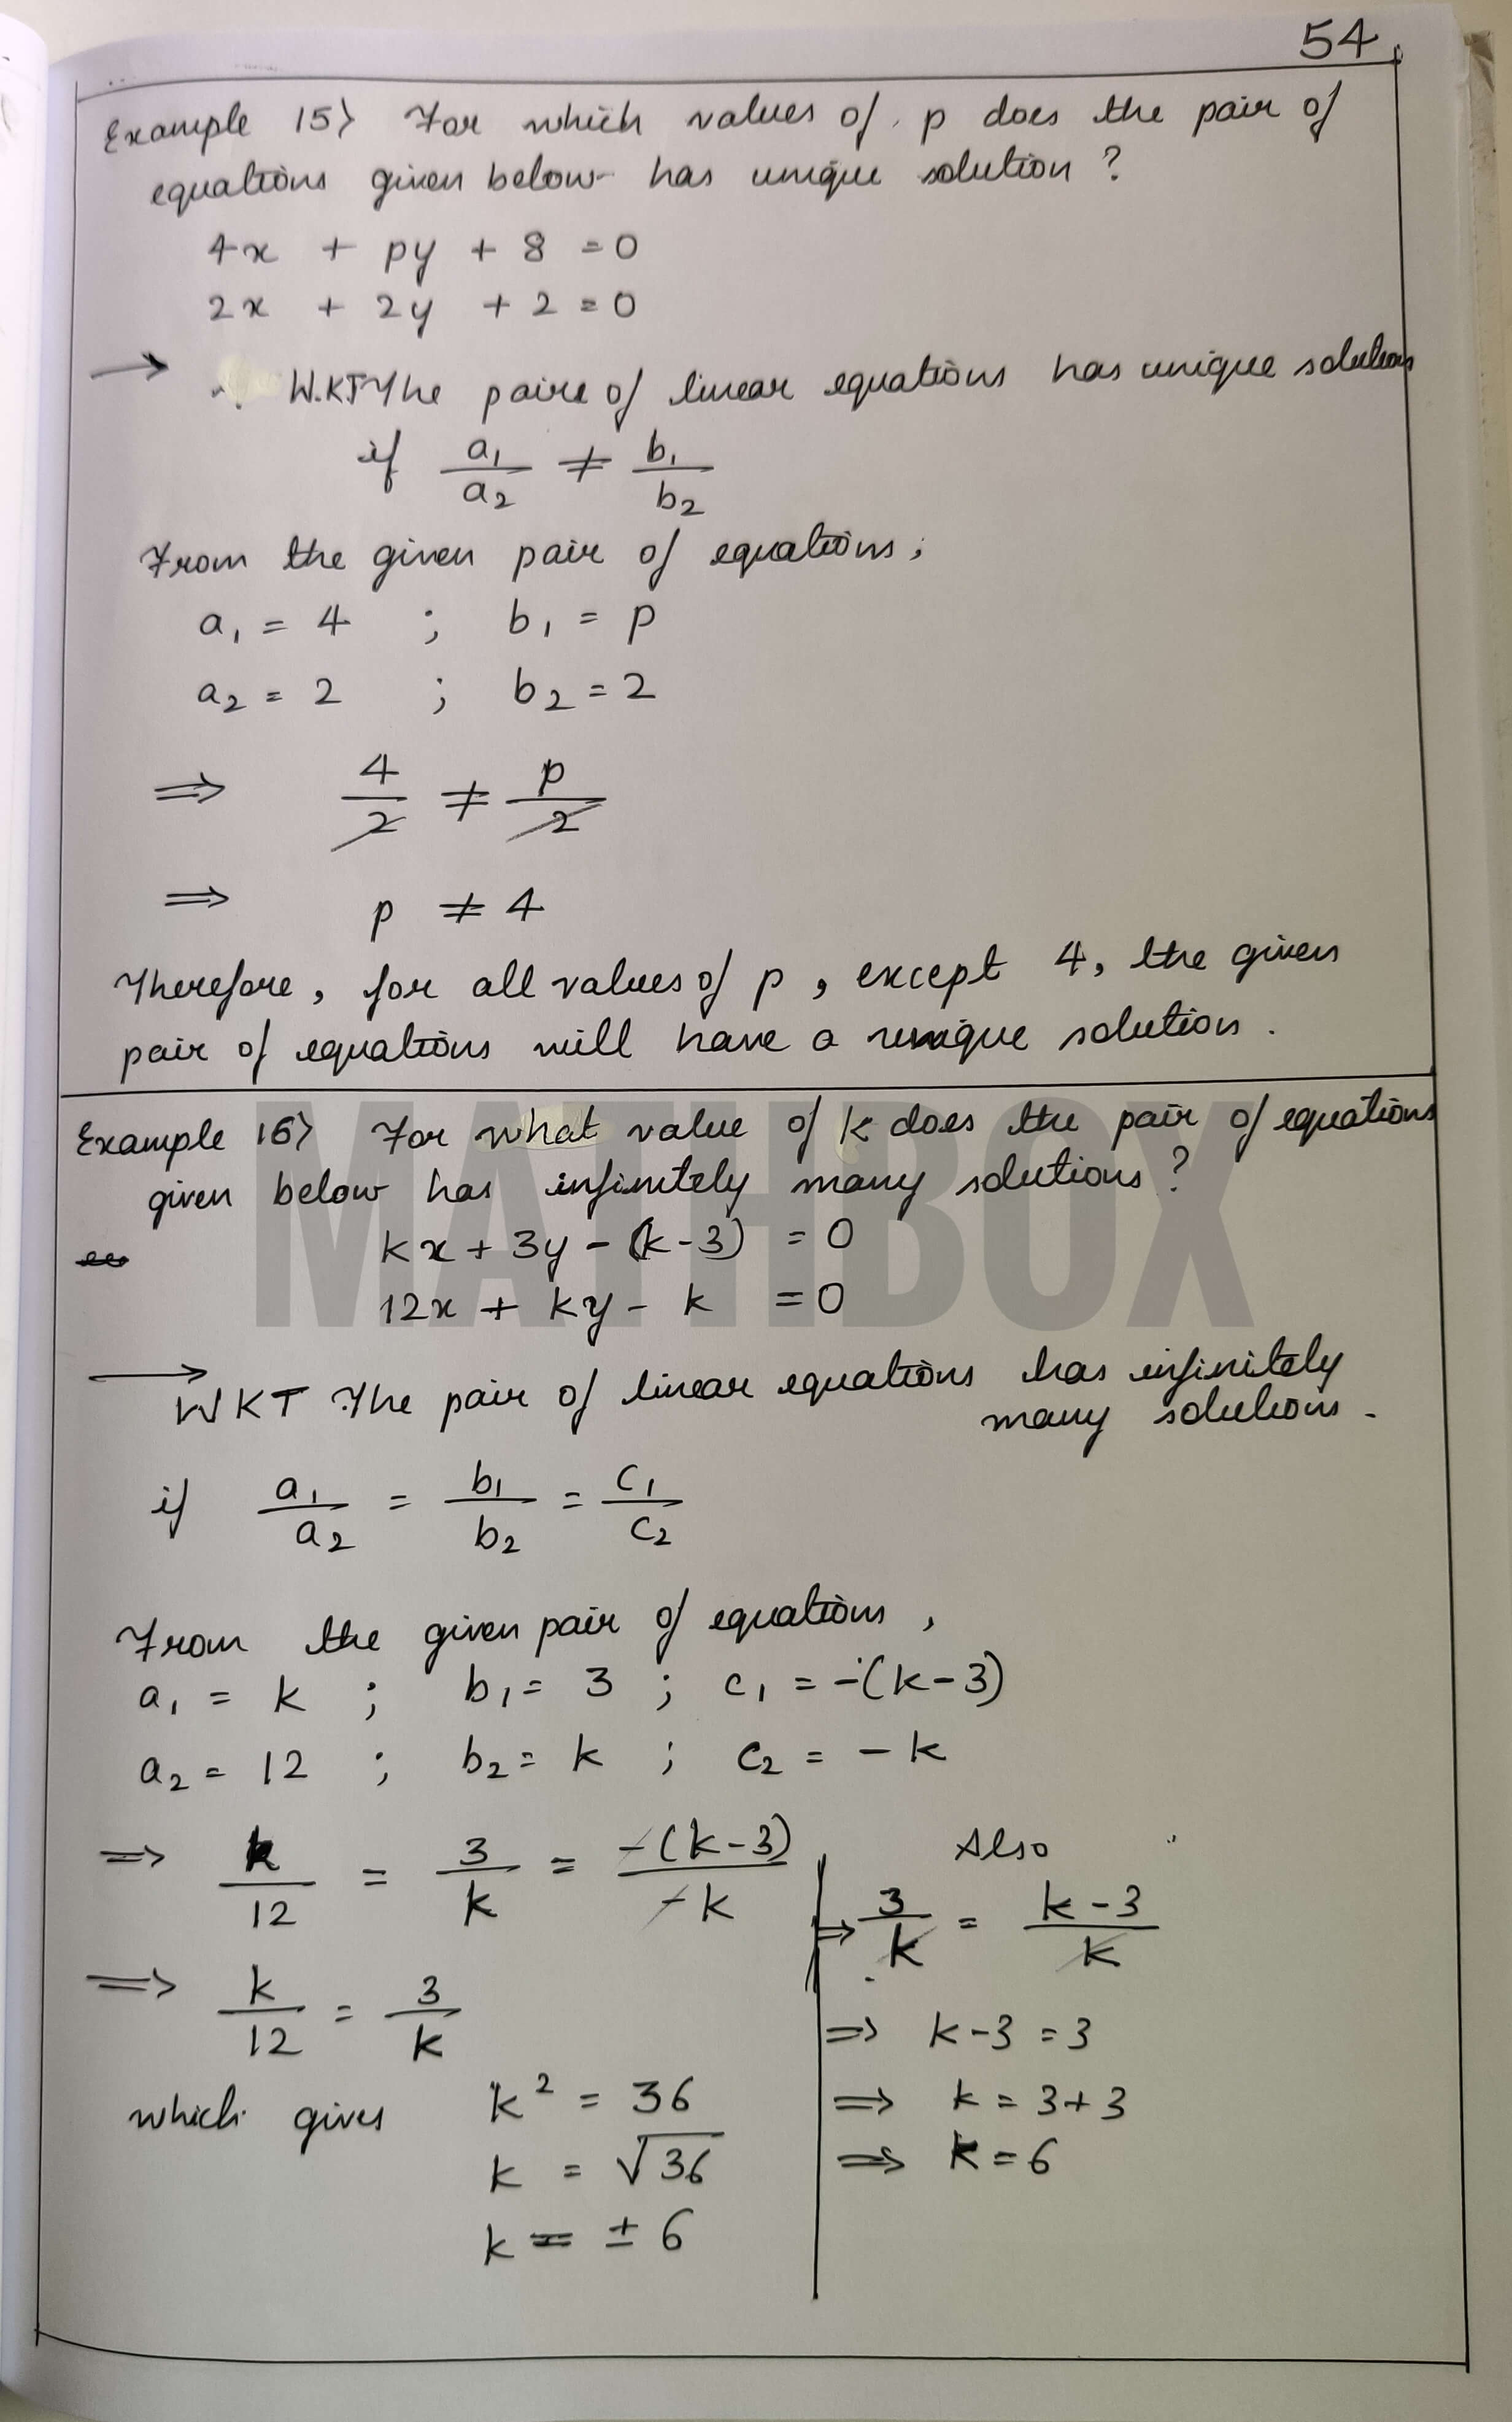 54
Example 15) For which values of p does the pair of
equations given below has unique solution ?
4x + py + 8 = 0
2x + 2y + 2 = 0
→ W.K.T The paire of linear equations has unique solutions
if a₁/a₂ ≠ b₁/b₂
From the given pair of equations,
a₁ = 4 ; b₁ = p
a₂ = 2 ; b₂ = 2
⇒ 4/2 ≠ p/2
⇒ p ≠ 4
Therefore, for all values of p, except 4, the given
pair of equations will have a unique solution.
MATHBOX
Example 16) For what value of k does the pair of equations
given below has infinitely many solutions ?
kx + 3y - (k-3) = 0
12x + ky - k = 0
→ WKT The pair of linear equations has infinitely
many solutions.
if a₁/a₂ = b₁/b₂ = c₁/c₂
From the given pair of equations,
a₁ = k ; b₁ = 3 ; c₁ = -(k-3)
a₂ = 12 ; b₂ = k ; c₂ = -k
⇒ k/12 = 3/k = -(k-3)/-k
⇒ k/12 = 3/k
which gives k² = 36
k = √36
k = ± 6
Also
⇒ 3/k = k-3/k
⇒ k-3 = 3
⇒ k = 3+3
⇒ k = 6